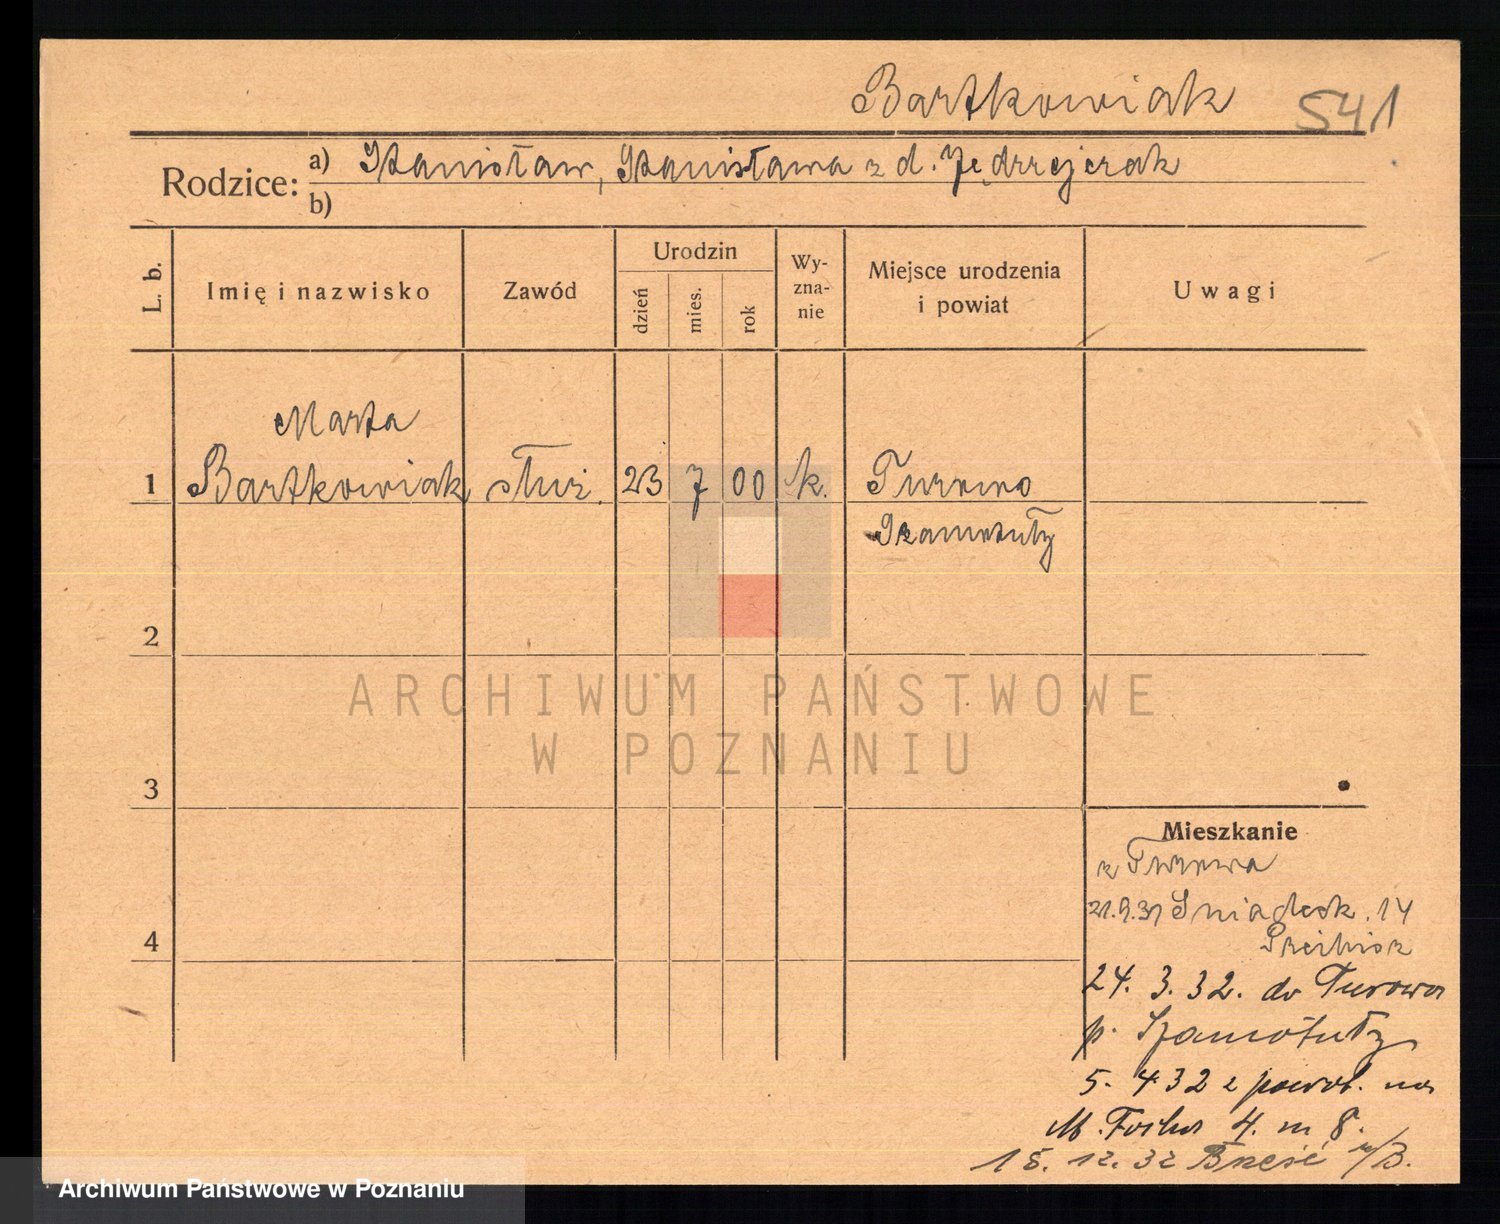 Bartkowiak 541
Rodzice: a) Stanisław, Stanisława z d. Jędrzejczak
b)
L. b. Imię i nazwisko Zawód Urodzin dzień mies. rok Wy-zna-nie Miejsce urodzenia i powiat Uwagi
Marta
1 Bartkowiak służ. 23 7 00 k. Turowo
Szamotuły
2
ARCHIWUM PAŃSTWOWE
W POZNANIU
3
Mieszkanie
z Turowa
21.9.31 Śniadeck. 14
4
24. 3. 32. do Turowa
p. Szamotuły
5. 4 32 z powrt. na
M. Focha 4. m 8.
15. 12. 32 Brześć n/B.
Archiwum Państwowe w Poznaniu